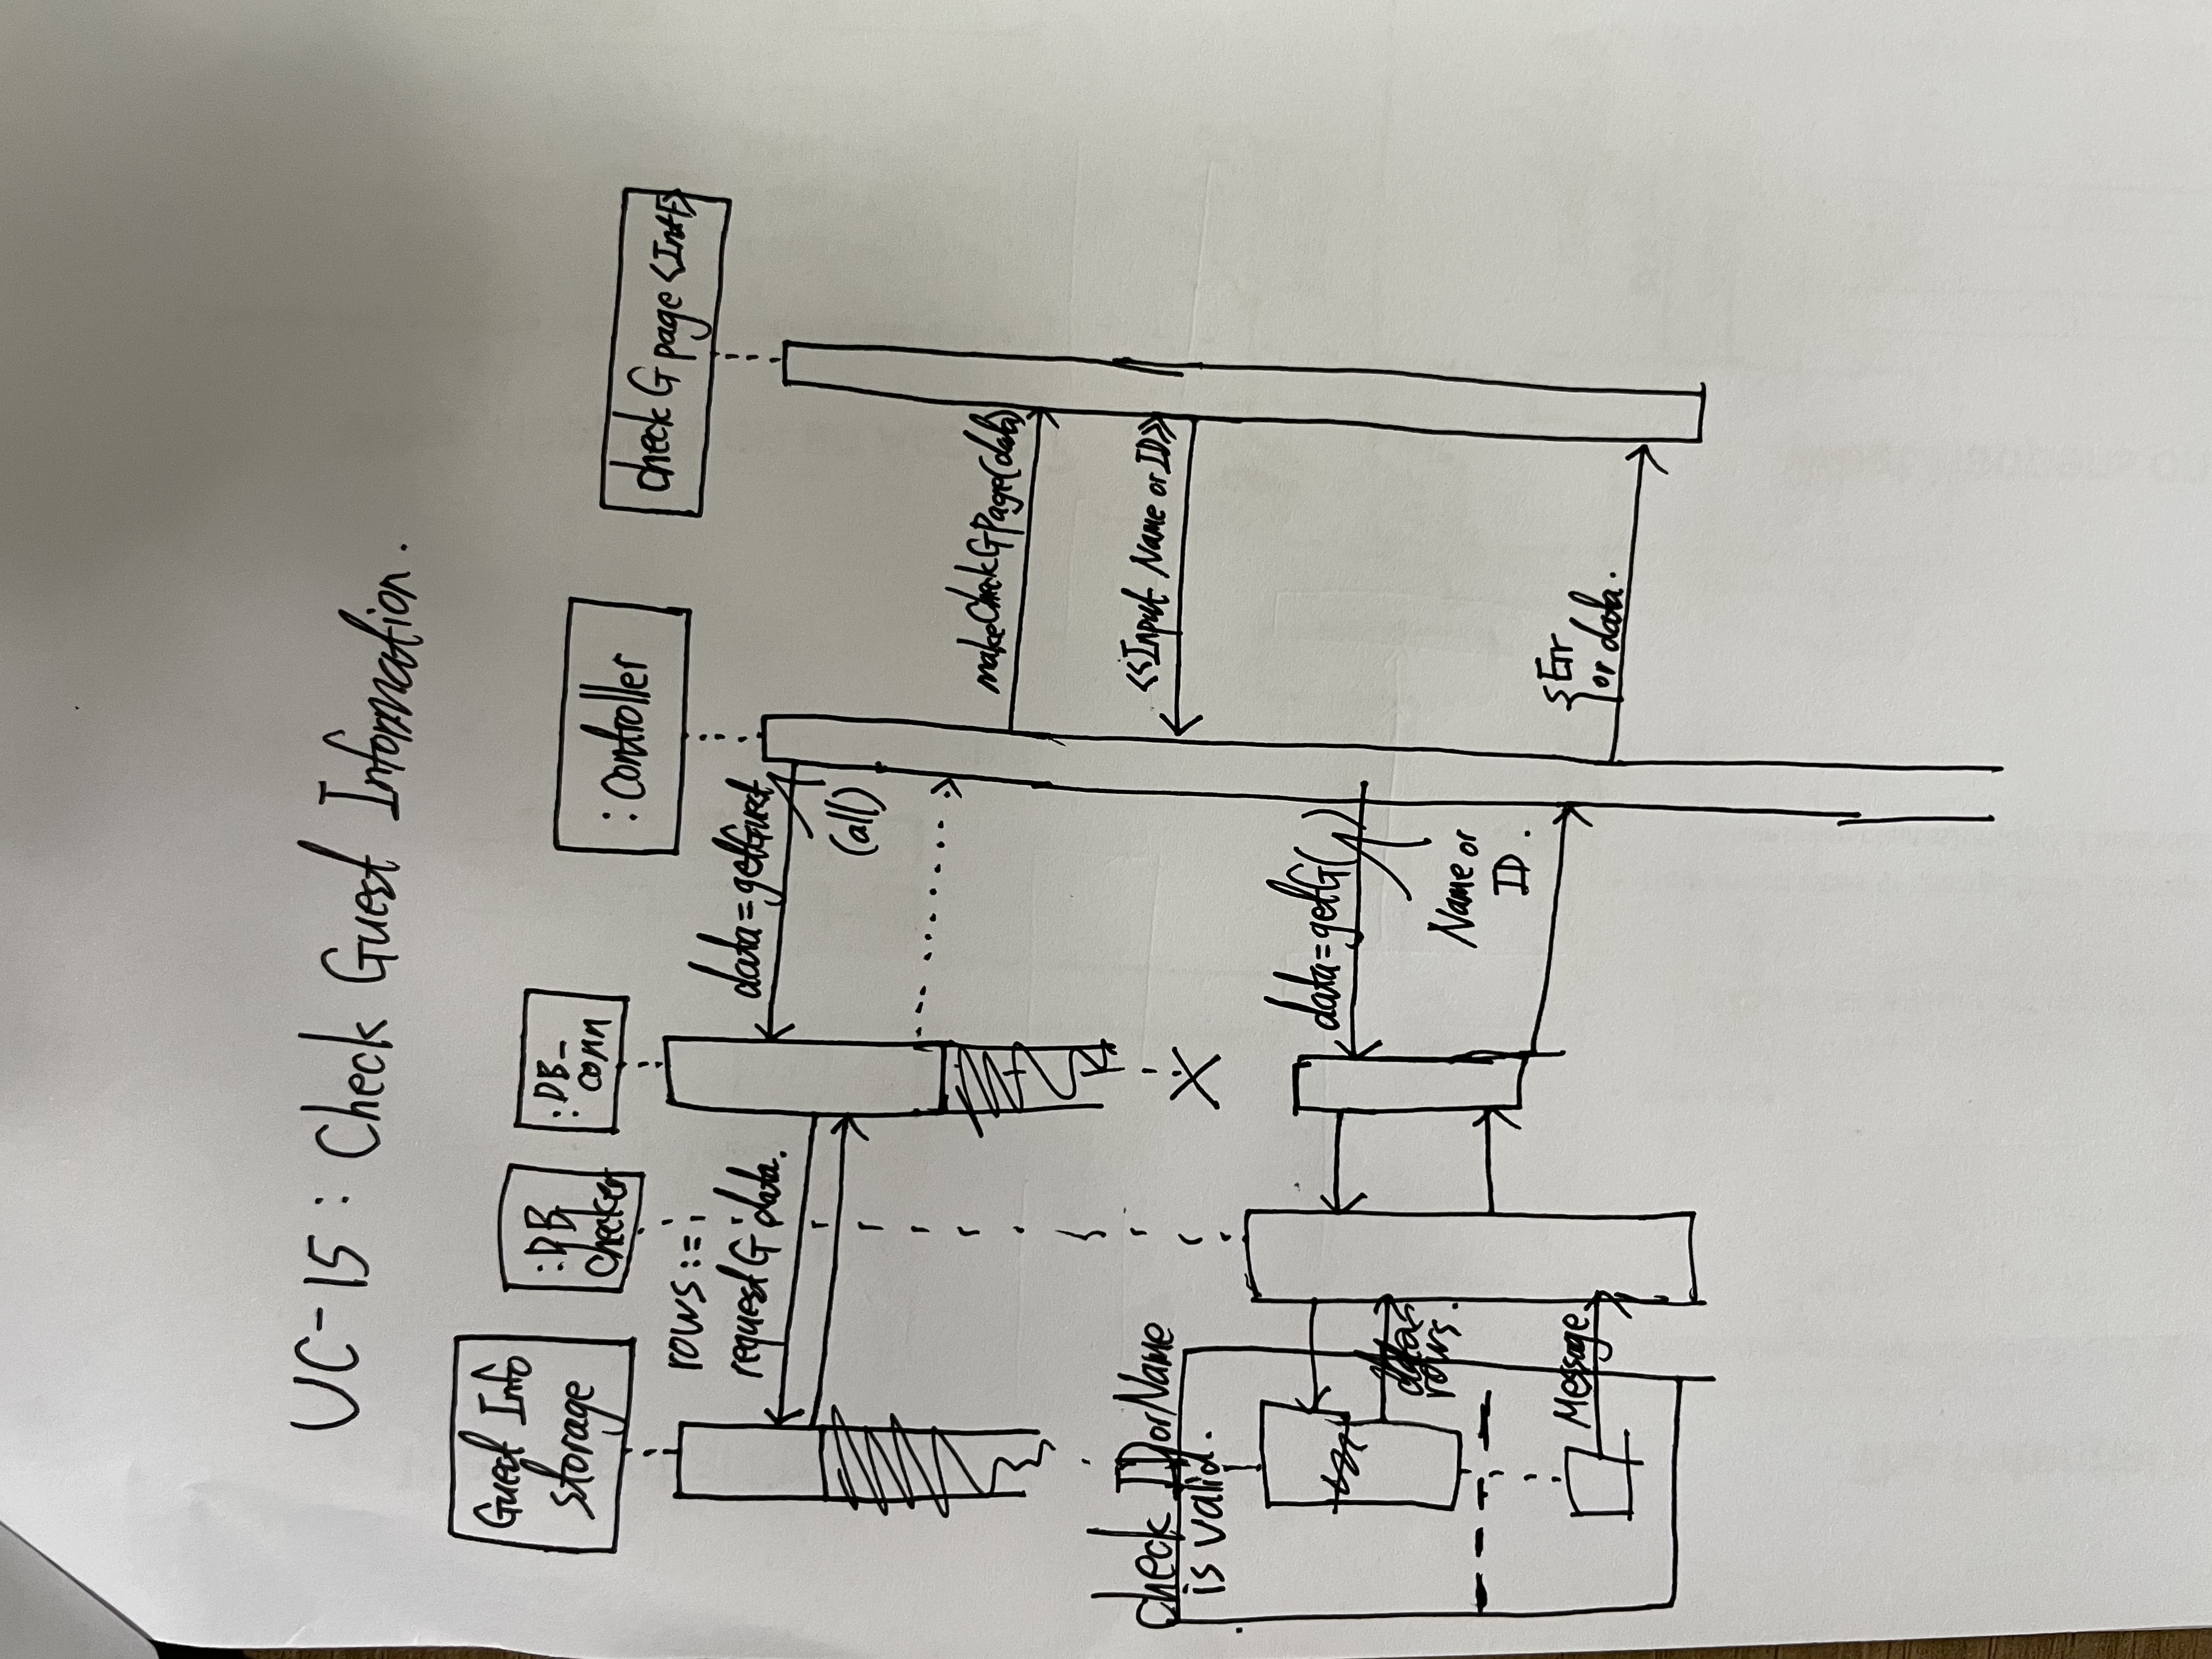 UC-15 : Check Guest Information.
Guest Info
storage
:DB
checker
:DB_
conn
: Controller
check G page <IntF>
rows :=
request G data.
data = getGuest
(all)
makeCheckGPage(data)
check ID or Name
is valid.
<<Input Name or ID>>
data = getG( )
data =
rows.
Name or
ID.
Message
{ Err
or data.